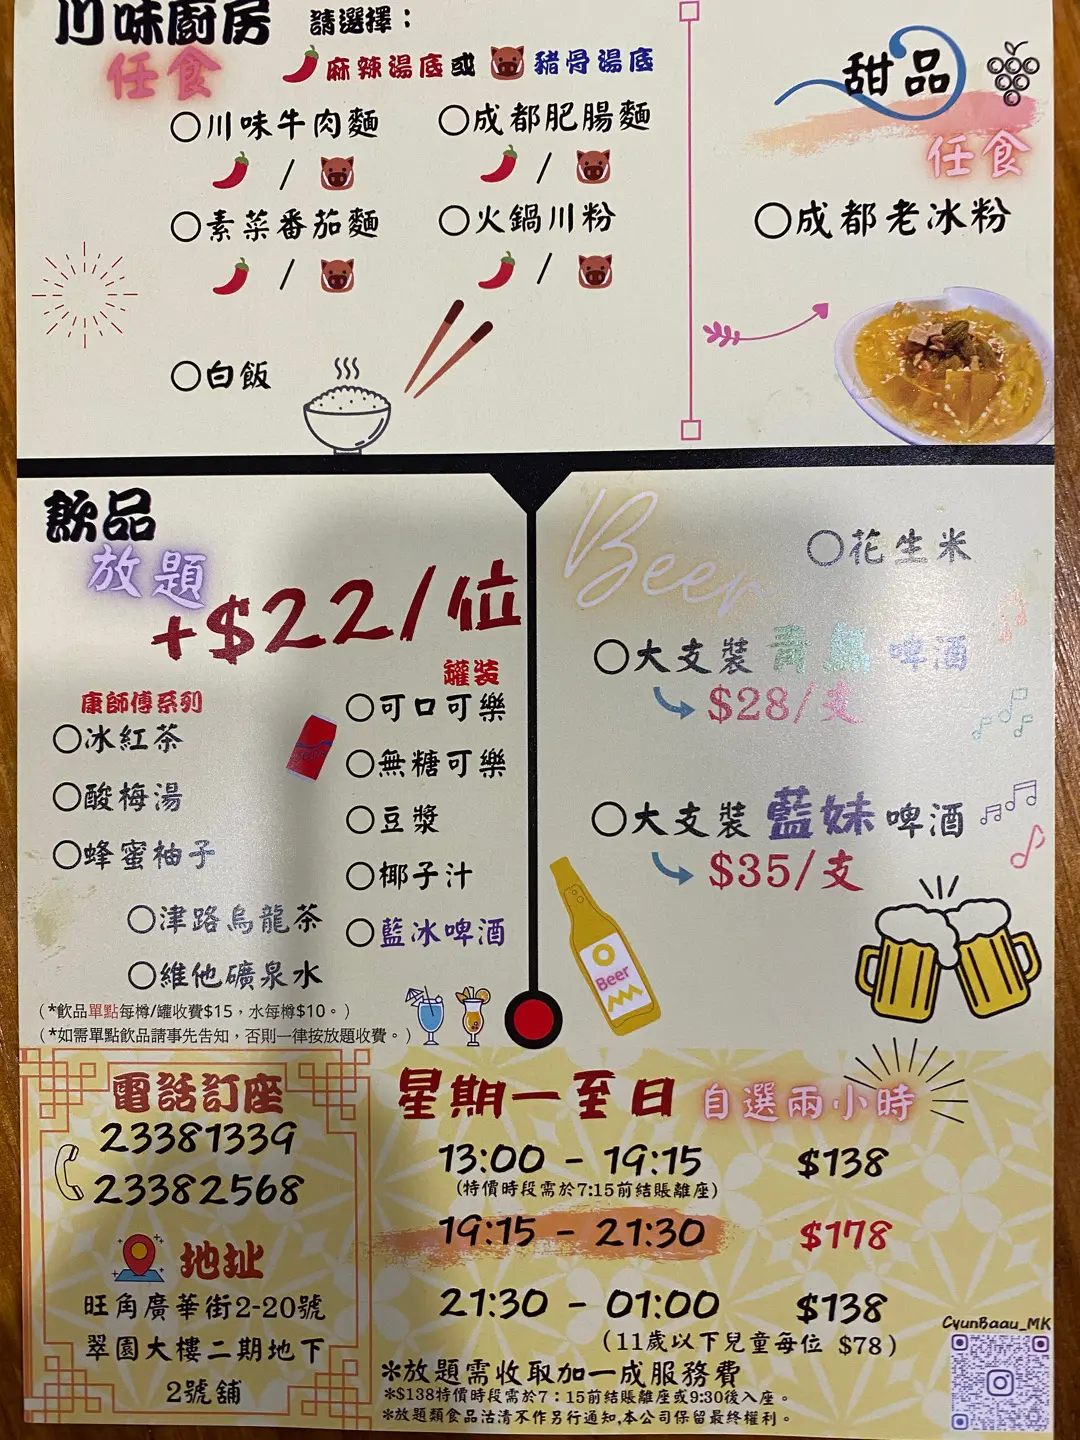 川味廚房
任食
請選擇：
麻辣湯底或
豬骨湯底
川味牛肉麵
成都肥腸麵
/
/
素菜番茄麵
火鍋川粉
/
/
白飯
甜品
任食
成都老冰粉
飲品
放題
+$22/位
康師傅系列
冰紅茶
酸梅湯
蜂蜜柚子
津路烏龍茶
維他礦泉水
罐装
可口可樂
無糖可樂
豆漿
椰子汁
藍冰啤酒
(*飲品單點每樽/罐收費$15，水每樽$10。)
(*如需單點飲品請事先告知，否則一律按放題收費。)
Beer
花生米
大支裝青島啤酒
$28/支
大支裝藍妹啤酒
$35/支
Beer
電話訂座
23381339
23382568
地址
旺角廣華街2-20號
翠園大樓二期地下
2號舖
星期一至日 自選兩小時
13:00 - 19:15 $138
(特價時段需於7:15前結賬離座)
19:15 - 21:30 $178
21:30 - 01:00 $138
(11歲以下兒童每位 $78)
*放題需收取加一成服務費
*$138特價時段需於7：15前結賬離座或9:30後入座。
*放題類食品沽清不作另行通知,本公司保留最終權利。
CyunBaau_MK